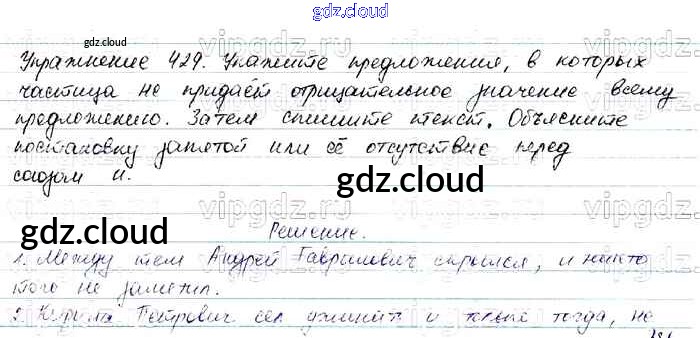 gdz.cloud
gdz.cloud
Упражнение 429. Укажите предложения, в которых
частица не придаёт отрицательное значение всему
предложению. Затем спишите текст. Объясните
постановку запятой или её отсутствие перед
союзом и.
gdz.cloud
gdz.cloud
Решение.
1. Между тем Андрей Гаврилович скрылся, и никто
того не заметил.
2. Кирила Петрович сел ужинать и только тогда, не